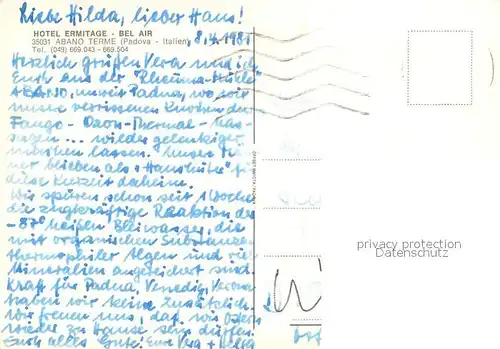 Liebe Hilda, lieber Hans!
HOTEL ERMITAGE - BEL AIR
35031 ABANO TERME (Padova - Italien), 8.4.1981
Tel. (049) 669.043 - 669.504
Herzlich grüßen Vera und ich
Euch aus der "Rheuma-
ABANO, unweit Padua, wo wir
unsere verrissenen Knochen den
Fango - Ozon-Thermal-
wieder gelenkiger
machen lassen. Unser
blieben als "Haushüter" für
diese Kurzeit daheim.
Wir spüren schon seit 1 Woche
die zugkräftige Reaktion des
87° heißen Bleiwasser, die
mit organischen Substanzen
thermophiler Algen und viel
Mineralien angereichert sind.
Kraft für Padua, Venedig, Verona
haben wir keine zusätzlich.
Wir freuen uns, daß wir Ostern
wieder zu Hause sein dürfen.
Euch alles Gute! Eure Vera +
privacy protection
Datenschutz